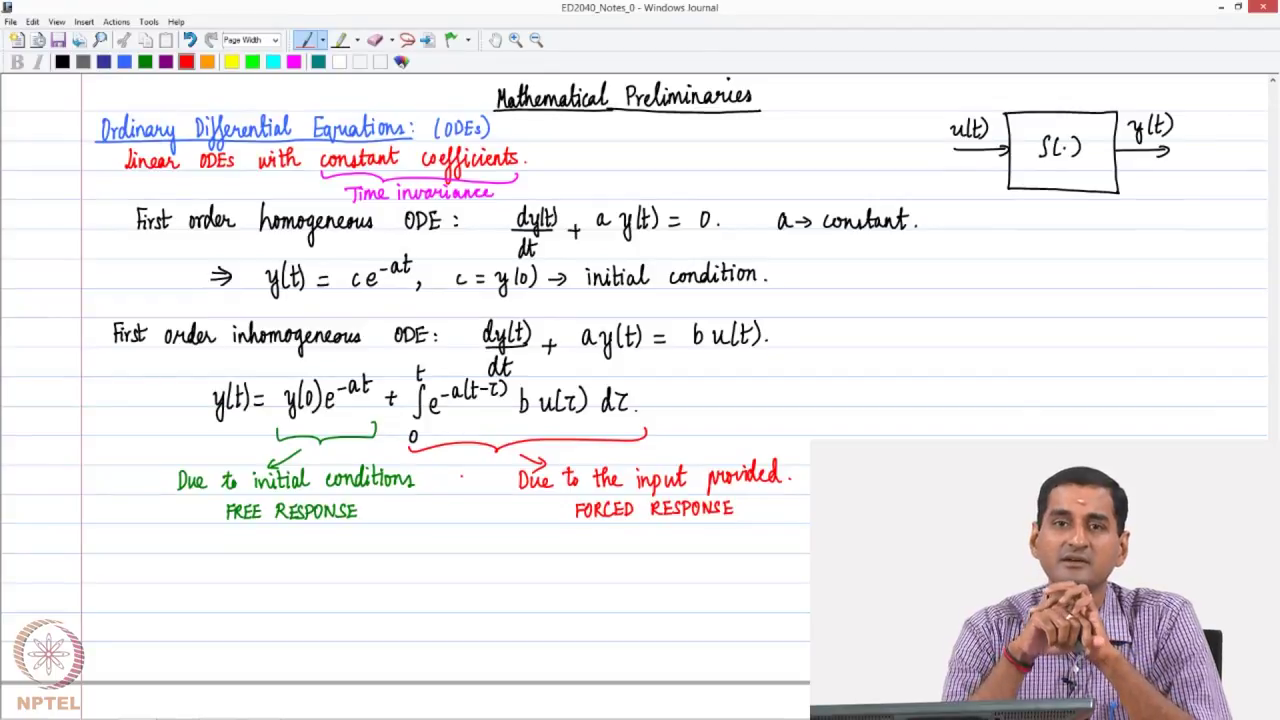 ED2040_Notes_0 - Windows Journal
File Edit View Insert Actions Tools Help
Page Width
B I
Mathematical Preliminaries
Ordinary Differential Equations: (ODEs)
linear ODEs with constant coefficients.
Time invariance
u(t) S(.) y(t)
First order homogeneous ODE : dy(t)/dt + a y(t) = 0. a → constant.
⇒ y(t) = c e^{-at}, c = y(0) → initial condition.
First order inhomogeneous ODE: dy(t)/dt + a y(t) = b u(t).
y(t) = y(0) e^{-at} + ∫_0^t e^{-a(t-τ)} b u(τ) dτ.
Due to initial conditions
FREE RESPONSE
Due to the input provided.
FORCED RESPONSE
NPTEL